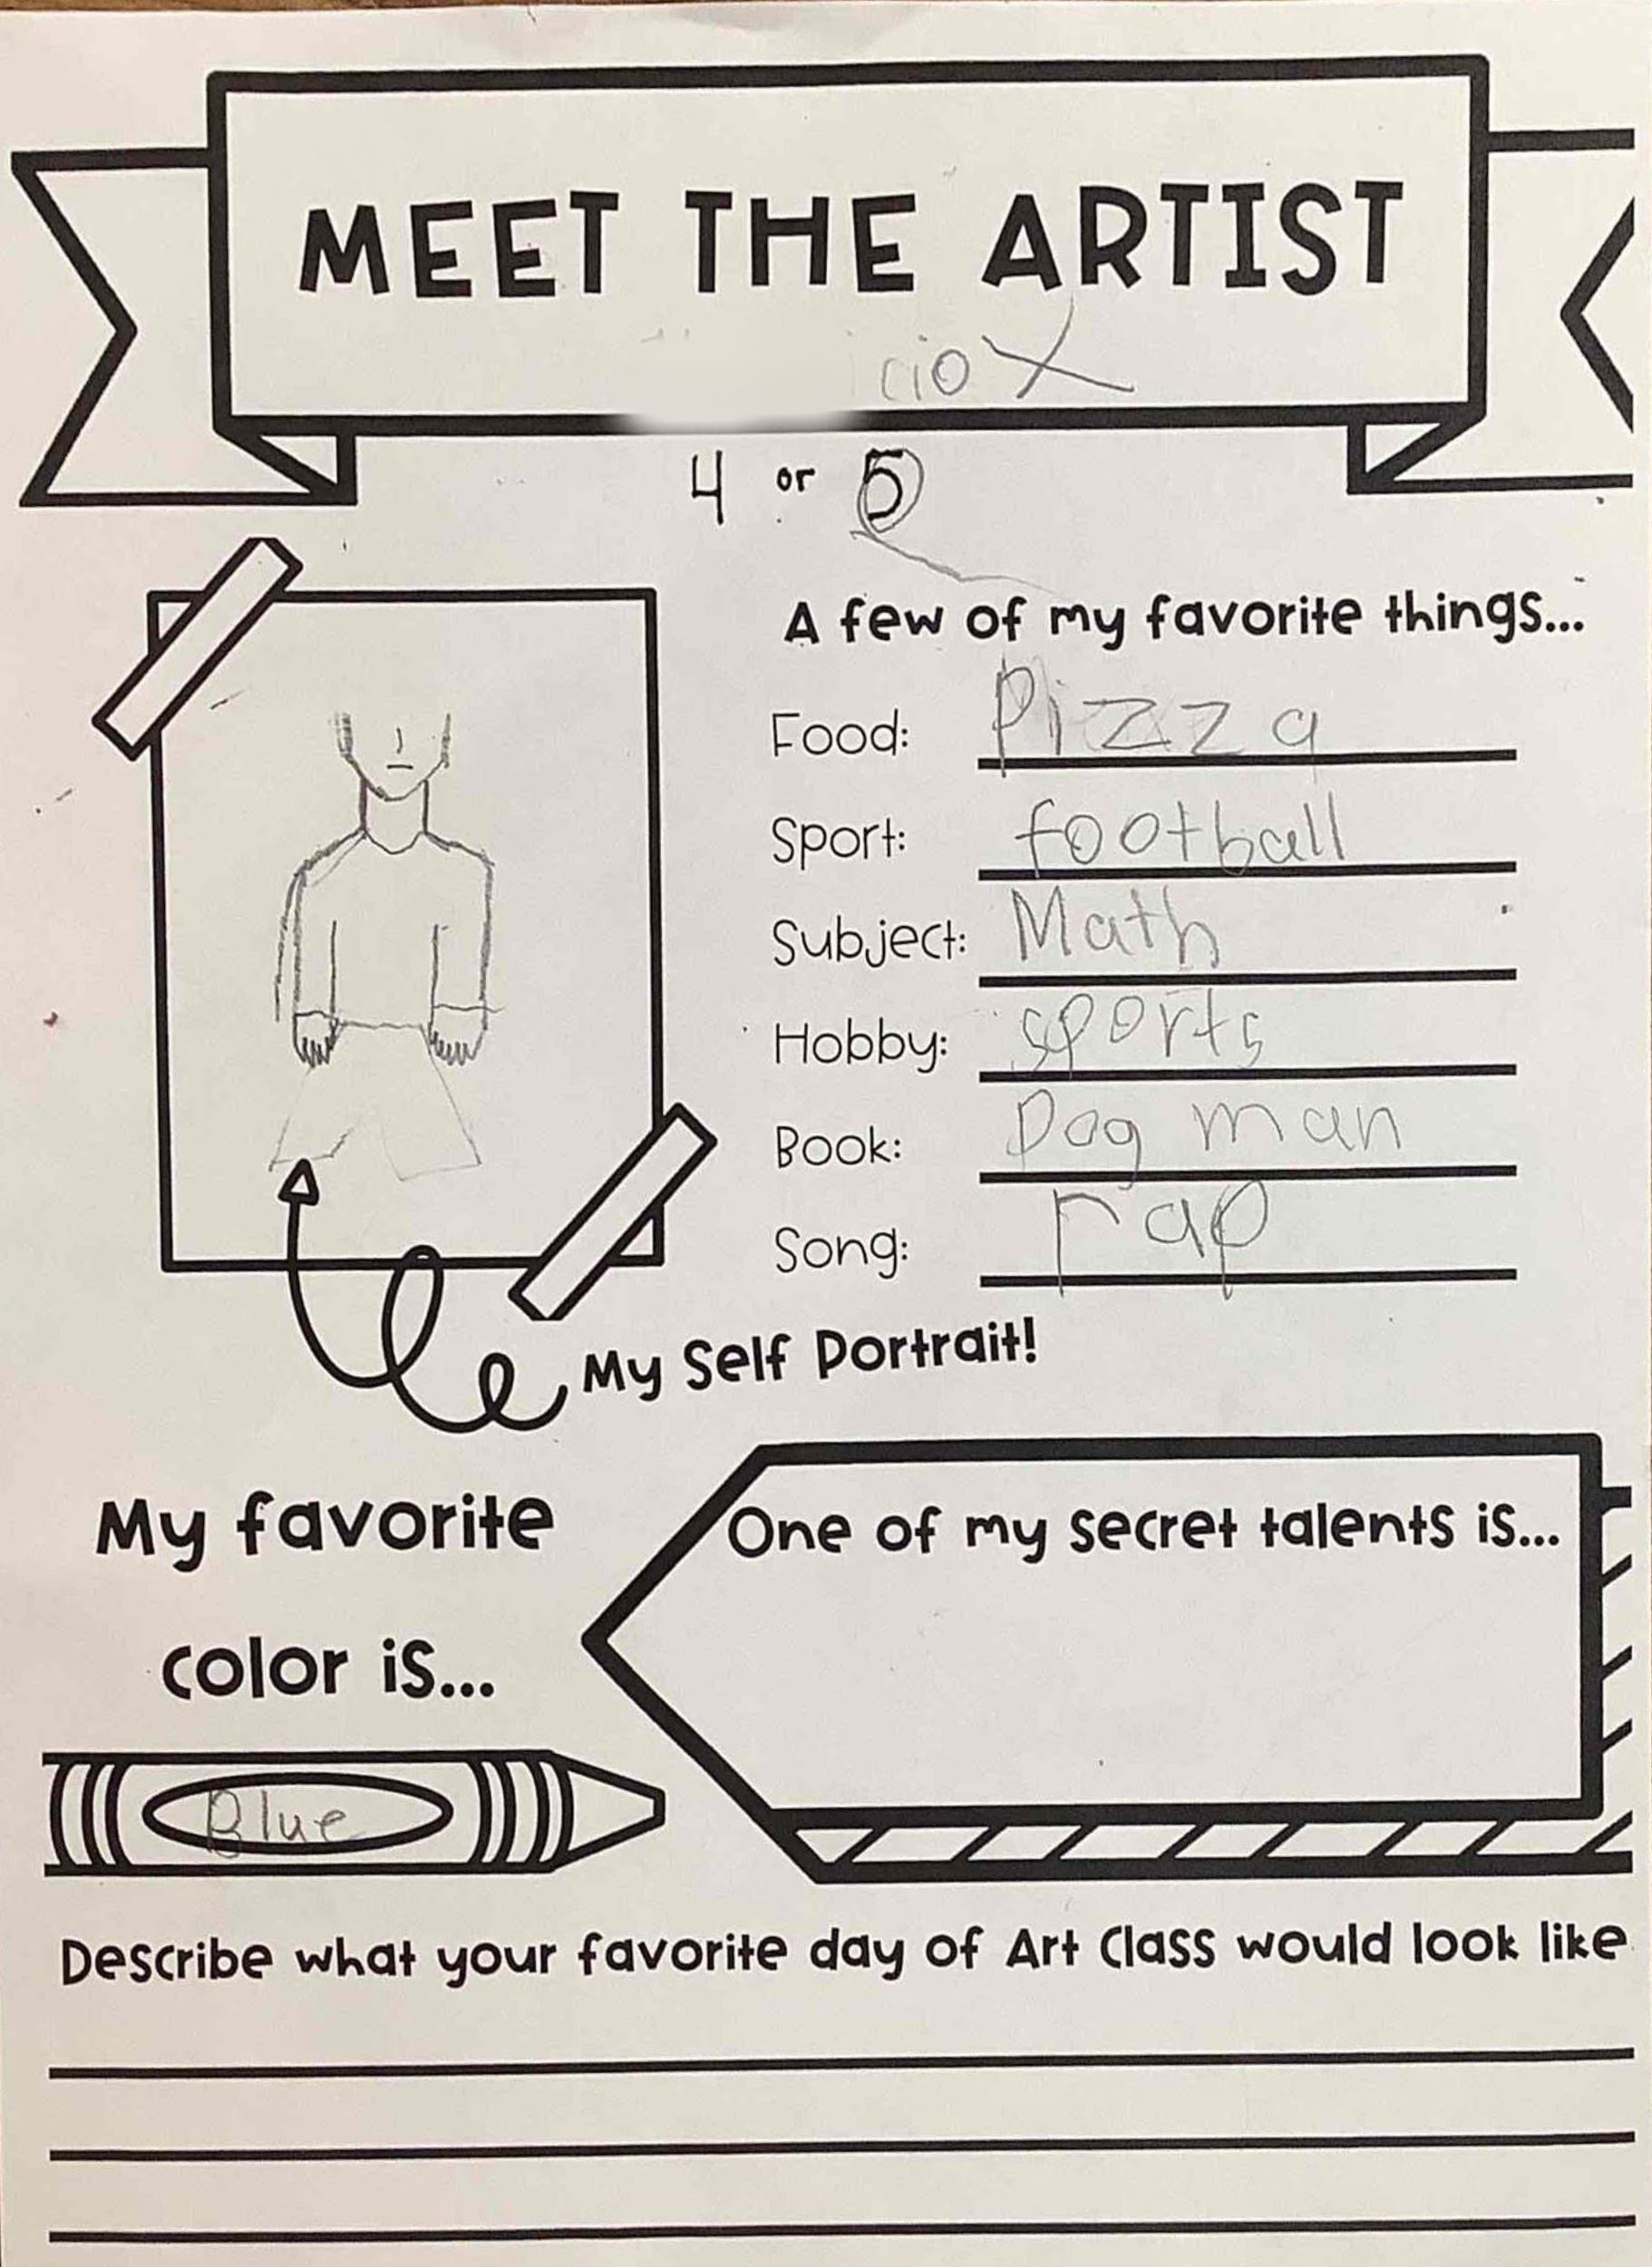 MEET THE ARTIST
cio X
4 or 5
A few of my favorite things...
Food: Pizza
Sport: football
Subject: Math
Hobby: sports
Book: Dog man
Song: rap
My Self Portrait!
My favorite
color is...
Blue
One of my secret talents is...
Describe what your favorite day of Art Class would look like